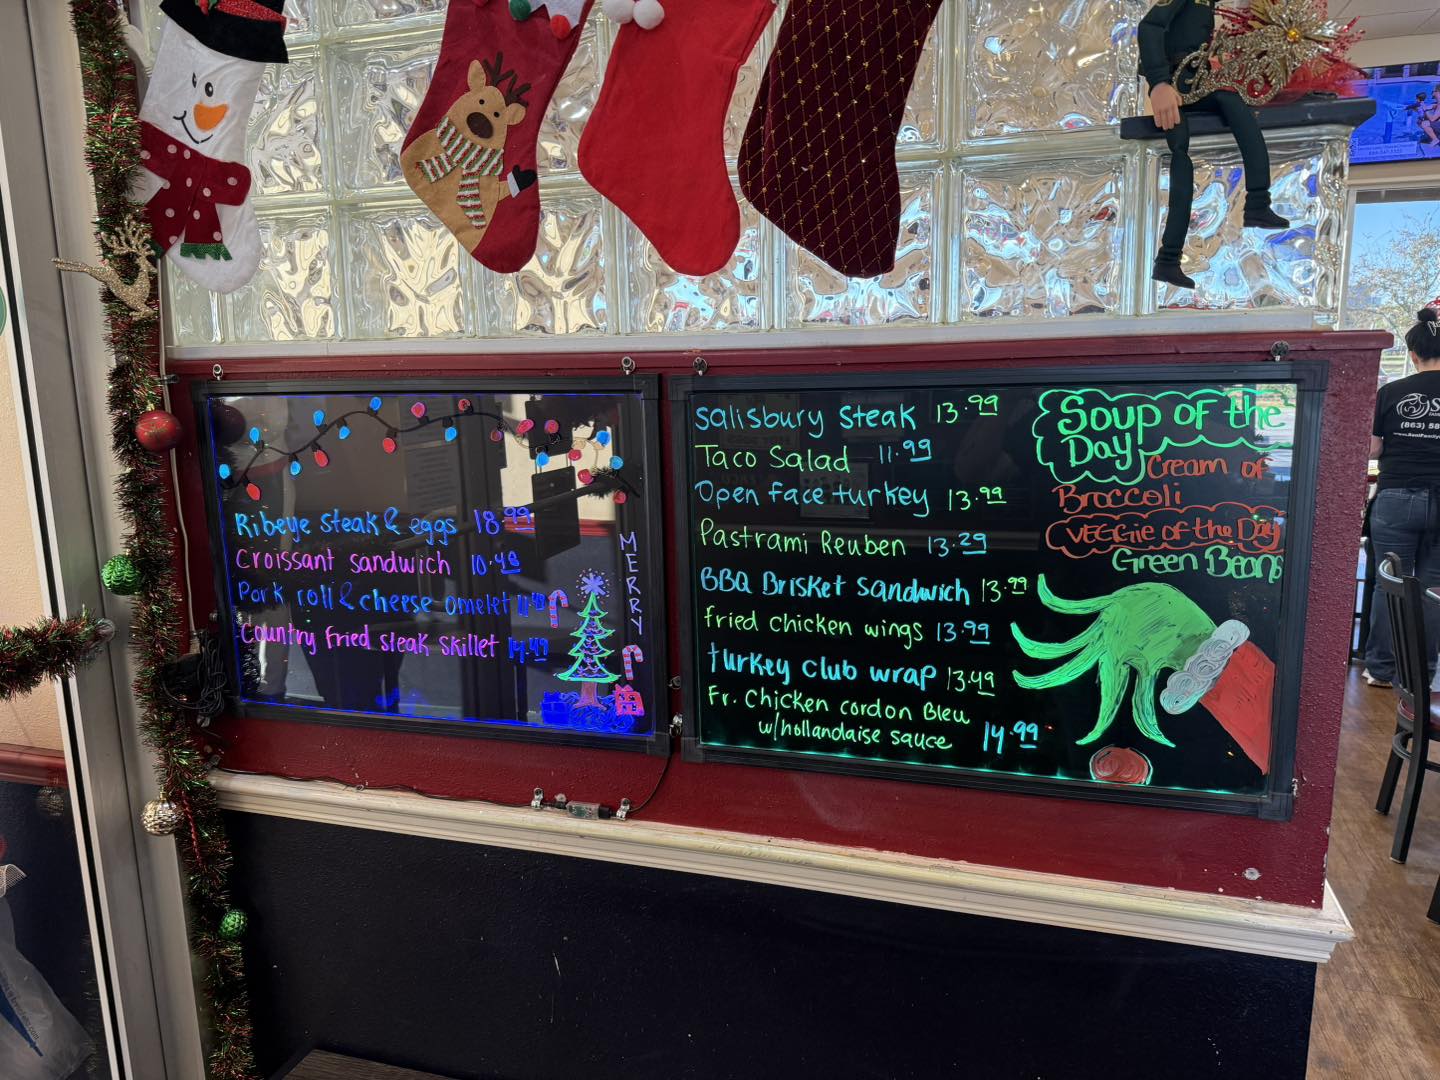 Ribeye steak & eggs 18.99
Croissant sandwich 10.49
Pork roll & cheese omelet 11.49
Country fried steak skillet 14.49
MERRY
Salisbury Steak 13.99
Taco Salad 11.99
Open face turkey 13.99
Pastrami Reuben 13.29
BBQ Brisket Sandwich 13.99
fried chicken wings 13.99
turkey club wrap 13.49
Fr. Chicken cordon Bleu
w/hollandaise sauce 14.99
Soup of the
Day Cream of
Broccoli
Veggie of the Day
Green Beans
(863) 58